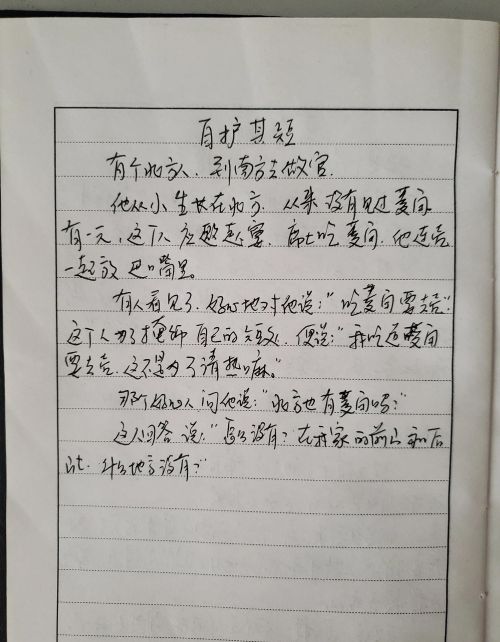 自护其短
有个北方人、到南方去做官.
他从小生长在北方、从来没有见过菱角
有一天,这个人应邀赴宴、席上吃菱角.他连壳
一起放进嘴里。
有人看见了.好心地对他说:"吃菱角要去壳".
这个人为了掩饰自己的短处、便说:"我吃连菱角
要去壳、这不是为了清热嘛。"
那个好心人问他说:"北方也有菱角吗?"
这人回答说:"怎么没有?在我家的前山和后
山、什么地方没有?"